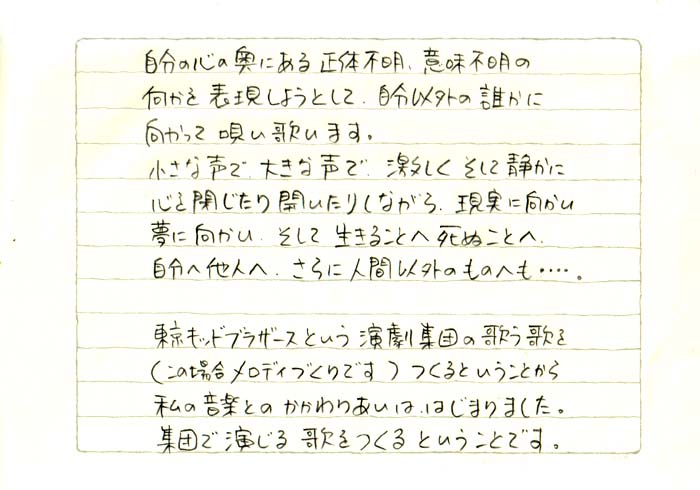 自分の心の奥にある正体不明、意味不明の
何かを表現しようとして、自分以外の誰かに
向かって唄い歌います。
小さな声で、大きな声で、激しくそして静かに
心を閉じたり開いたりしながら、現実に向かい
夢に向かい、そして生きることへ死ぬことへ、
自分へ他人へ、さらに人間以外のものへも・・・・。
東京キッドブラザースという演劇集団の歌う歌を
(この場合メロディづくりです)つくるということから
私の音楽とのかかわりあいは、はじまりました。
集団で演じる歌をつくるということです。